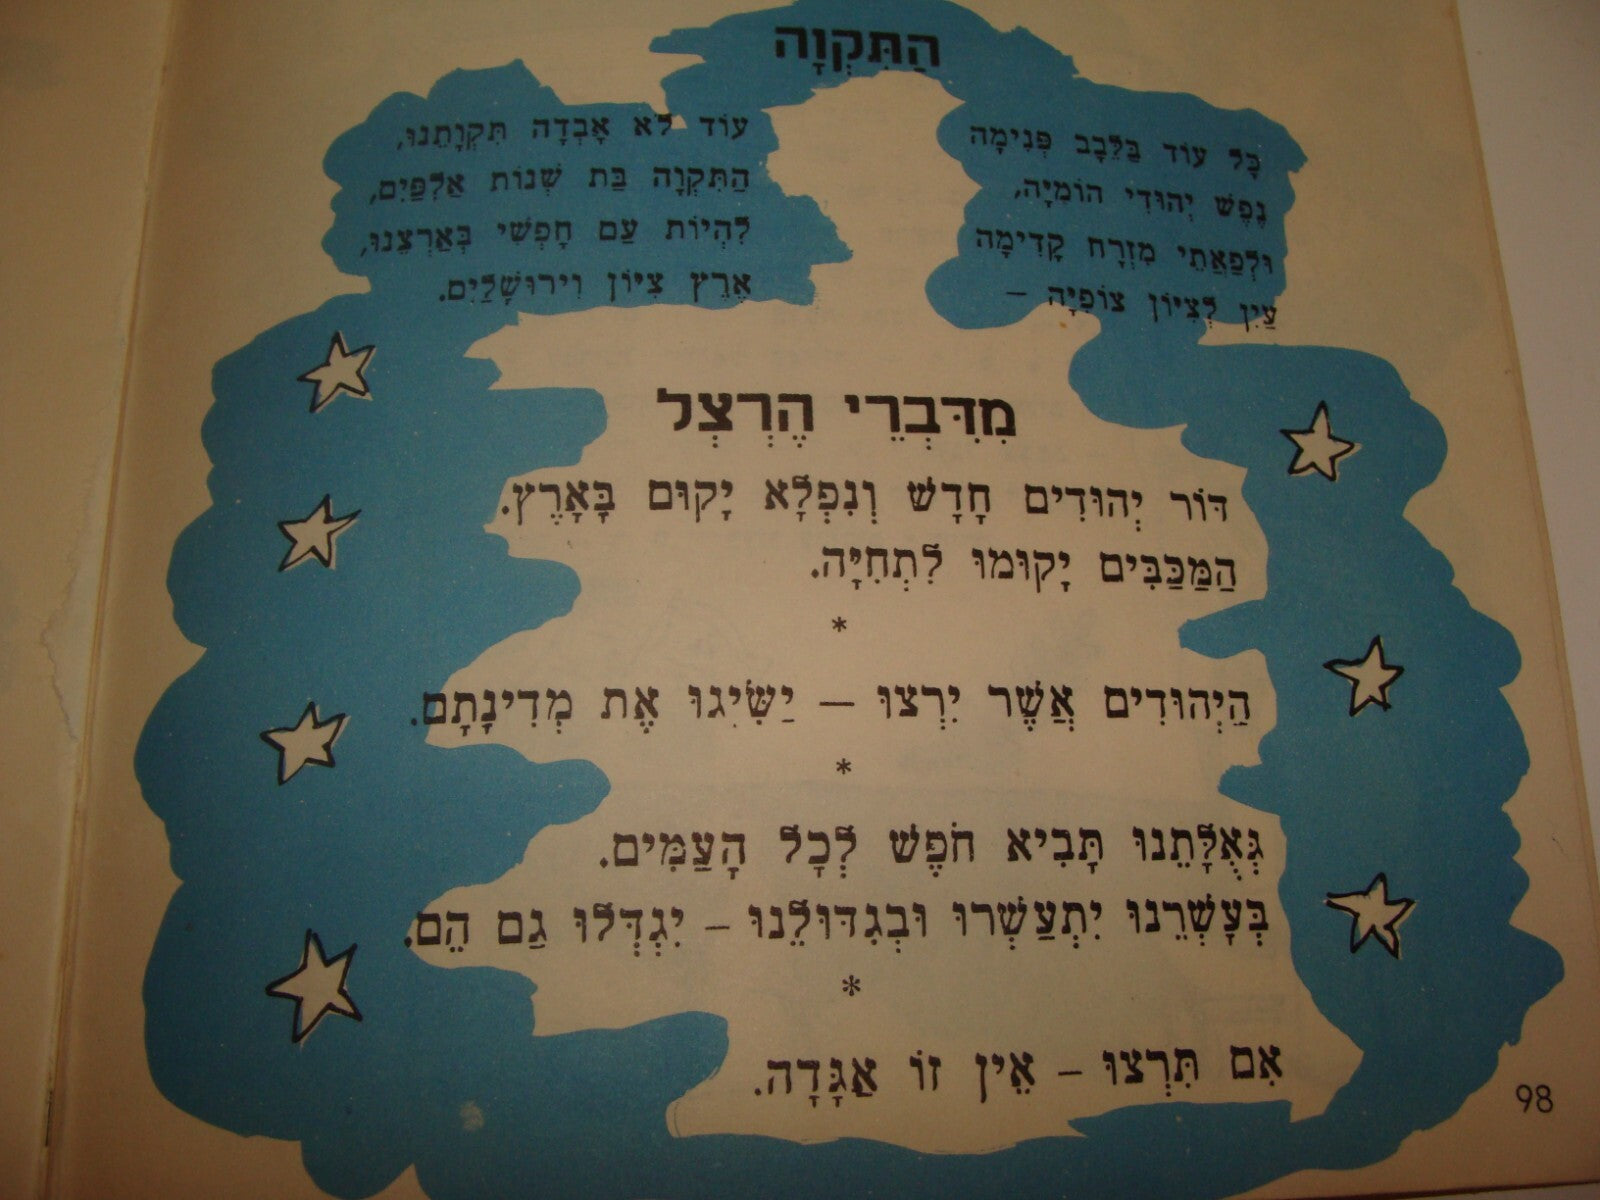 הַתִּקְוָה
כָּל עוֹד בַּלֵּבָב פְּנִימָה
נֶפֶשׁ יְהוּדִי הוֹמִיָּה,
וּלְפַאֲתֵי מִזְרָח קָדִימָה
עַיִן לְצִיּוֹן צוֹפִיָּה –
עוֹד לֹא אָבְדָה תִּקְוָתֵנוּ,
הַתִּקְוָה בַּת שְׁנוֹת אַלְפַּיִם,
לִהְיוֹת עַם חָפְשִׁי בְּאַרְצֵנוּ,
אֶרֶץ צִיּוֹן וִירוּשָׁלַיִם.
מִדִּבְרֵי הֶרְצְל
דּוֹר יְהוּדִים חָדָשׁ וְנִפְלָא יָקוּם בָּאָרֶץ.
הַמַּכַּבִּים יָקוּמוּ לִתְחִיָּה.
*
הַיְהוּדִים אֲשֶׁר יִרְצוּ – יַשִּׂיגוּ אֶת מְדִינָתָם.
*
גְּאֻלָּתֵנוּ תָּבִיא חֹפֶשׁ לְכָל הָעַמִּים.
בְּעָשְׁרֵנוּ יִתְעַשְּׁרוּ וּבְגִדּוּלֵנוּ – יִגְדְּלוּ גַם הֵם.
*
אִם תִּרְצוּ – אֵין זוֹ אַגָּדָה.
98